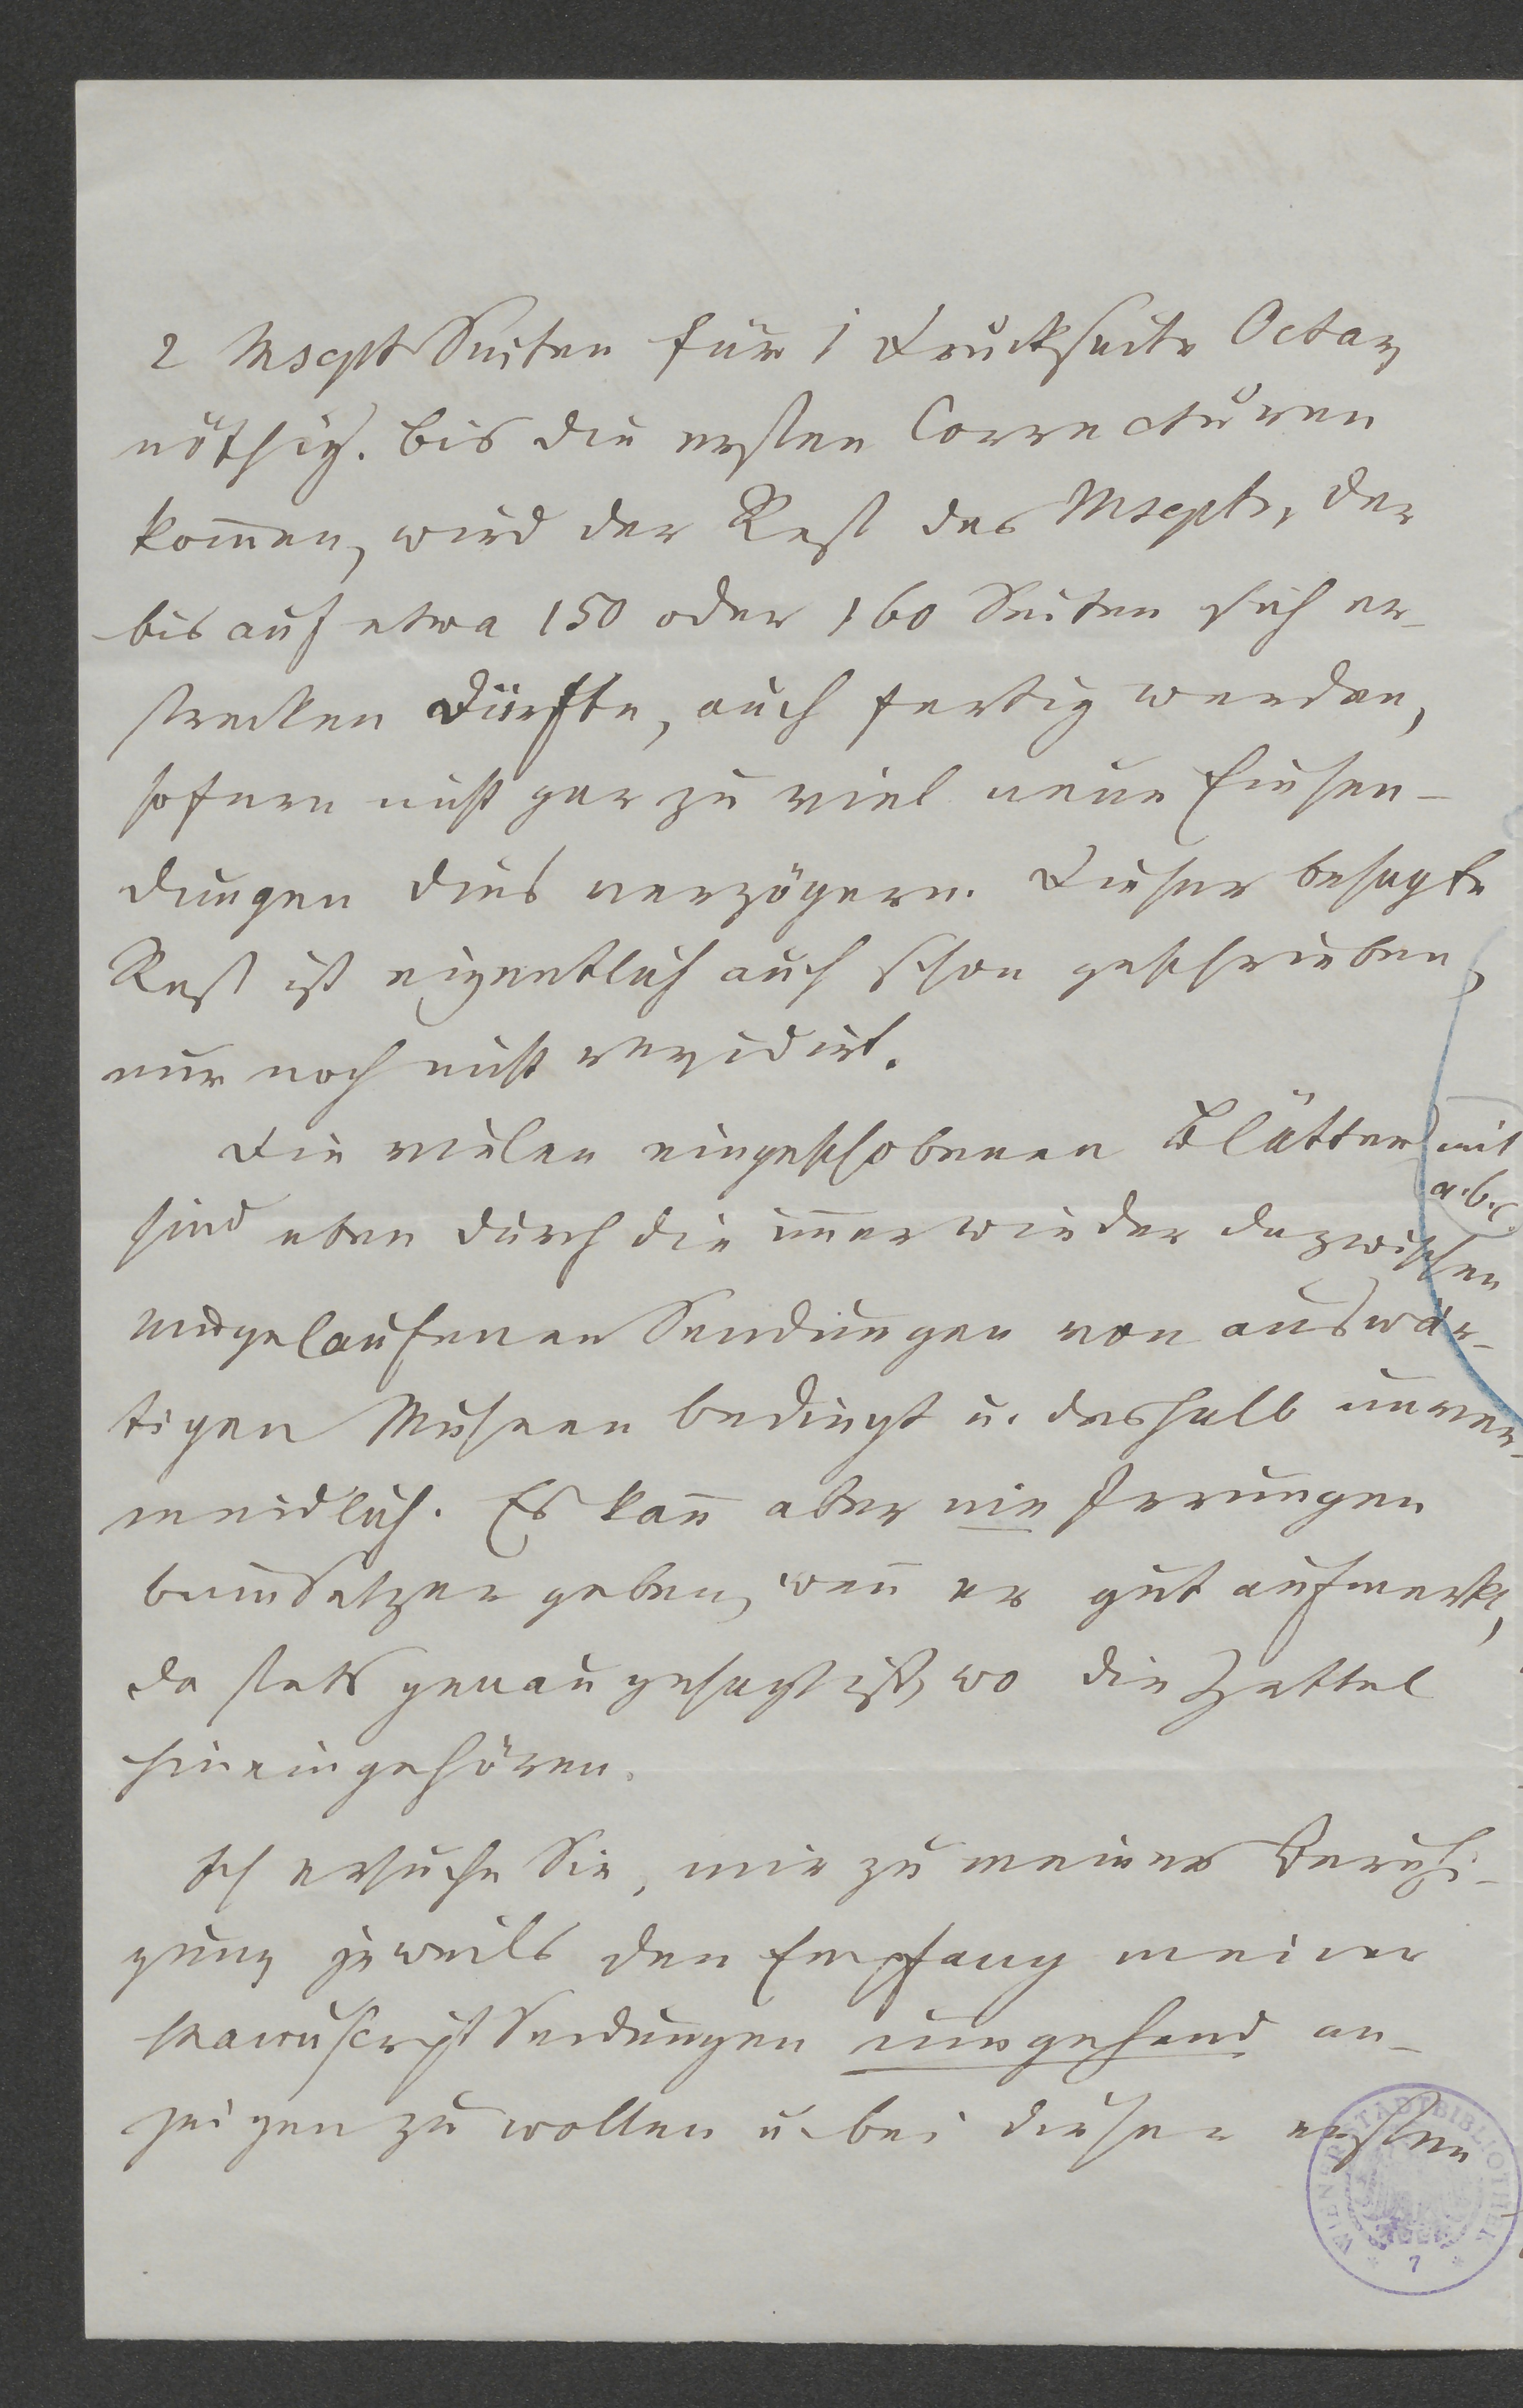 2 Mscpt Seiten für 1 Druckseite Octav
nöthig. Bis die ersten Correcturen
kom̄en, wird der Rest des Mscpts, der
bis auf etwa 150 oder 160 Seiten sich er-
strecken dürfte, auch fertig werden,
sofern nicht gar zu viel neue Einsen-
dungen dies verzögern. Dieser besagte
Rest ist eigentlich auch schon geschrieben,
nur noch nicht revidirt.
Die vielen eingeschobenen Blätter (mit
a. b. c.)
sind eben durch die im̄er wieder dazwischen
eingelaufenen Sendungen von auswär-
tigen Museen bedingt u. deshalb unver-
meidlich. Es kan̄ aber nie Irrungen
beim Setzer geben, wen̄ er gut aufmerkt,
da stets genau gesagt ist, wo die Zettel
hineingehören.
Ich ersuche Sie, mir zu meiner Beruhi-
gung jeweils den Empfang meiner
Manuscript Sendungen umgehend an-
zeigen zu wollen u. bei dieser ersten
WIENER STADTBIBLIOTHEK
* 7 *